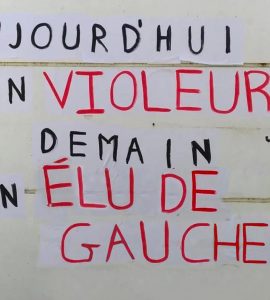 UJOURD'HUI
UN VIOLEUR
DEMAIN
UN ÉLU DE
GAUCHE